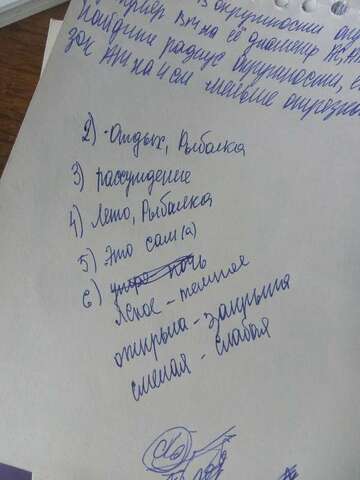 из окружности
Км на её диаметр
Найдите радиус окружности,
зок Ам на 4 см меньше отрезка
2) Отдых, Рыбалка
3) рассуждение
4) Лето, Рыбалка
5) Это сам(а)
6) ночь
Ясное - темное
открыла - закрыла
смелая - слабая